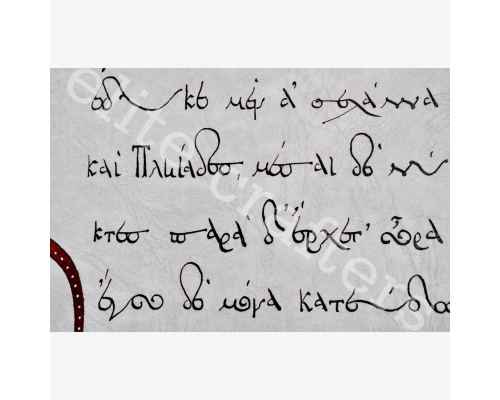 έδυκε μέν ἀ σελάννα
καὶ Πληίαδες, μέσαι δέ νύ
κτες πάρα δ' ἔρχετ' ὤρα
ἔγω δέ μόνα κατεύδω
elite crafters